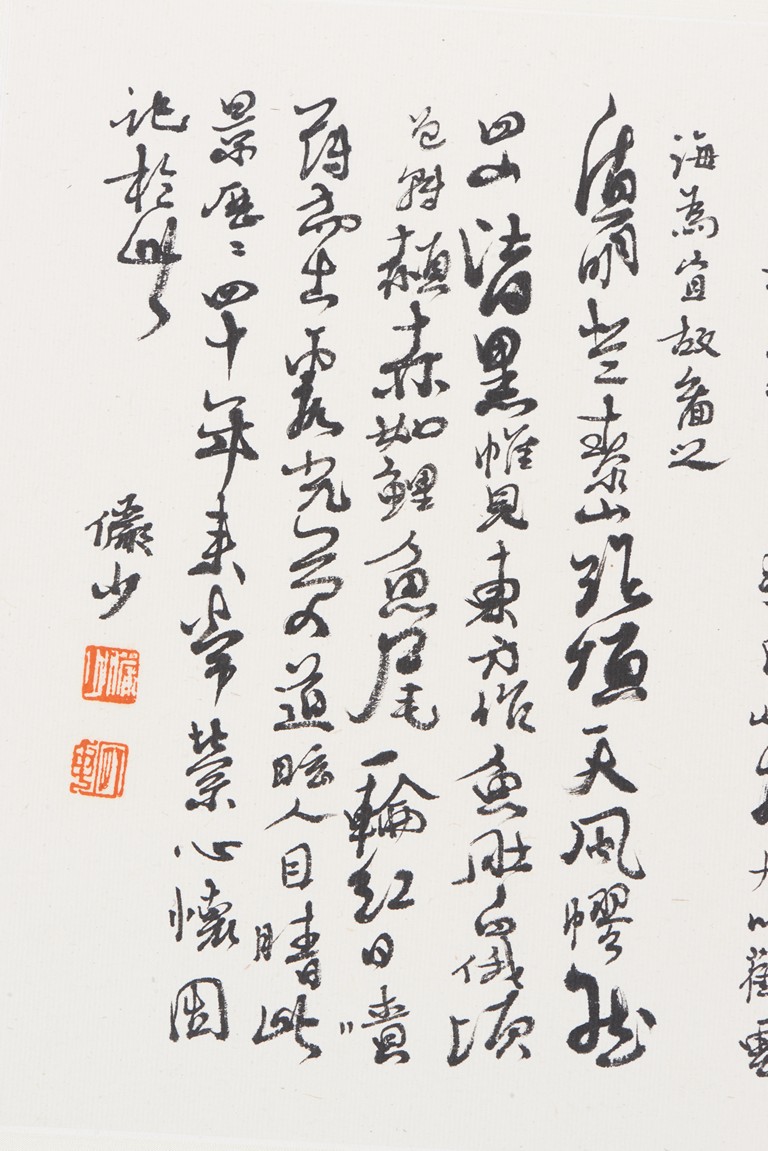 大以觀雲
海為宜故之
清明登泰山天風然
四山皆黑惟見東方作魚肚白俄頃
色轉赬赤如鯉魚尾一輪紅日噴
薄而出霞光萬道眩人目睛此
景歷々四十年來常縈心懷因
記於此
儼少